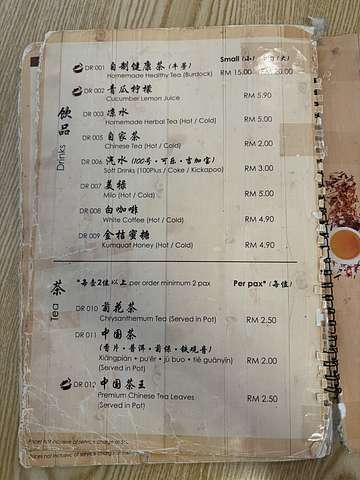 Small (小) 大)
DR 001 自制健康茶 (牛蒡)
Homemade Healthy Tea (Burdock) RM 15.00
DR 002 青瓜柠檬
Cucumber Lemon Juice RM 5.90
飲品 Drinks
DR 003 凉水
Homemade Herbal Tea (Hot / Cold) RM 5.00
DR 005 自家茶
Chinese Tea (Hot / Cold) RM 2.00
DR 006 汽水 (100号・可乐・吉加宝)
Soft Drinks (100Plus / Coke / Kickapoo) RM 3.00
DR 007 美禄
Milo (Hot / Cold) RM 5.00
DR 008 白咖啡
White Coffee (Hot / Cold) RM 4.90
DR 009 金桔蜜糖
Kumquat Honey (Hot / Cold) RM 4.90
茶 Tea
*每壶2位以上 per order minimum 2 pax Per pax* (每位)
DR 010 菊花茶
Chrysanthemum Tea (Served in Pot) RM 2.50
DR 011 中国茶
(香片・普洱・菊保・铁观音)
Xiāngpiàn • pu'ěr • jú buo • tiě guānyīn) RM 2.00
(Served in Pot)
DR 012 中国茶王
Premium Chinese Tea Leaves RM 2.50
(Served in Pot)
Prices not inclusive of service charge
Prices not inclusive of service charge